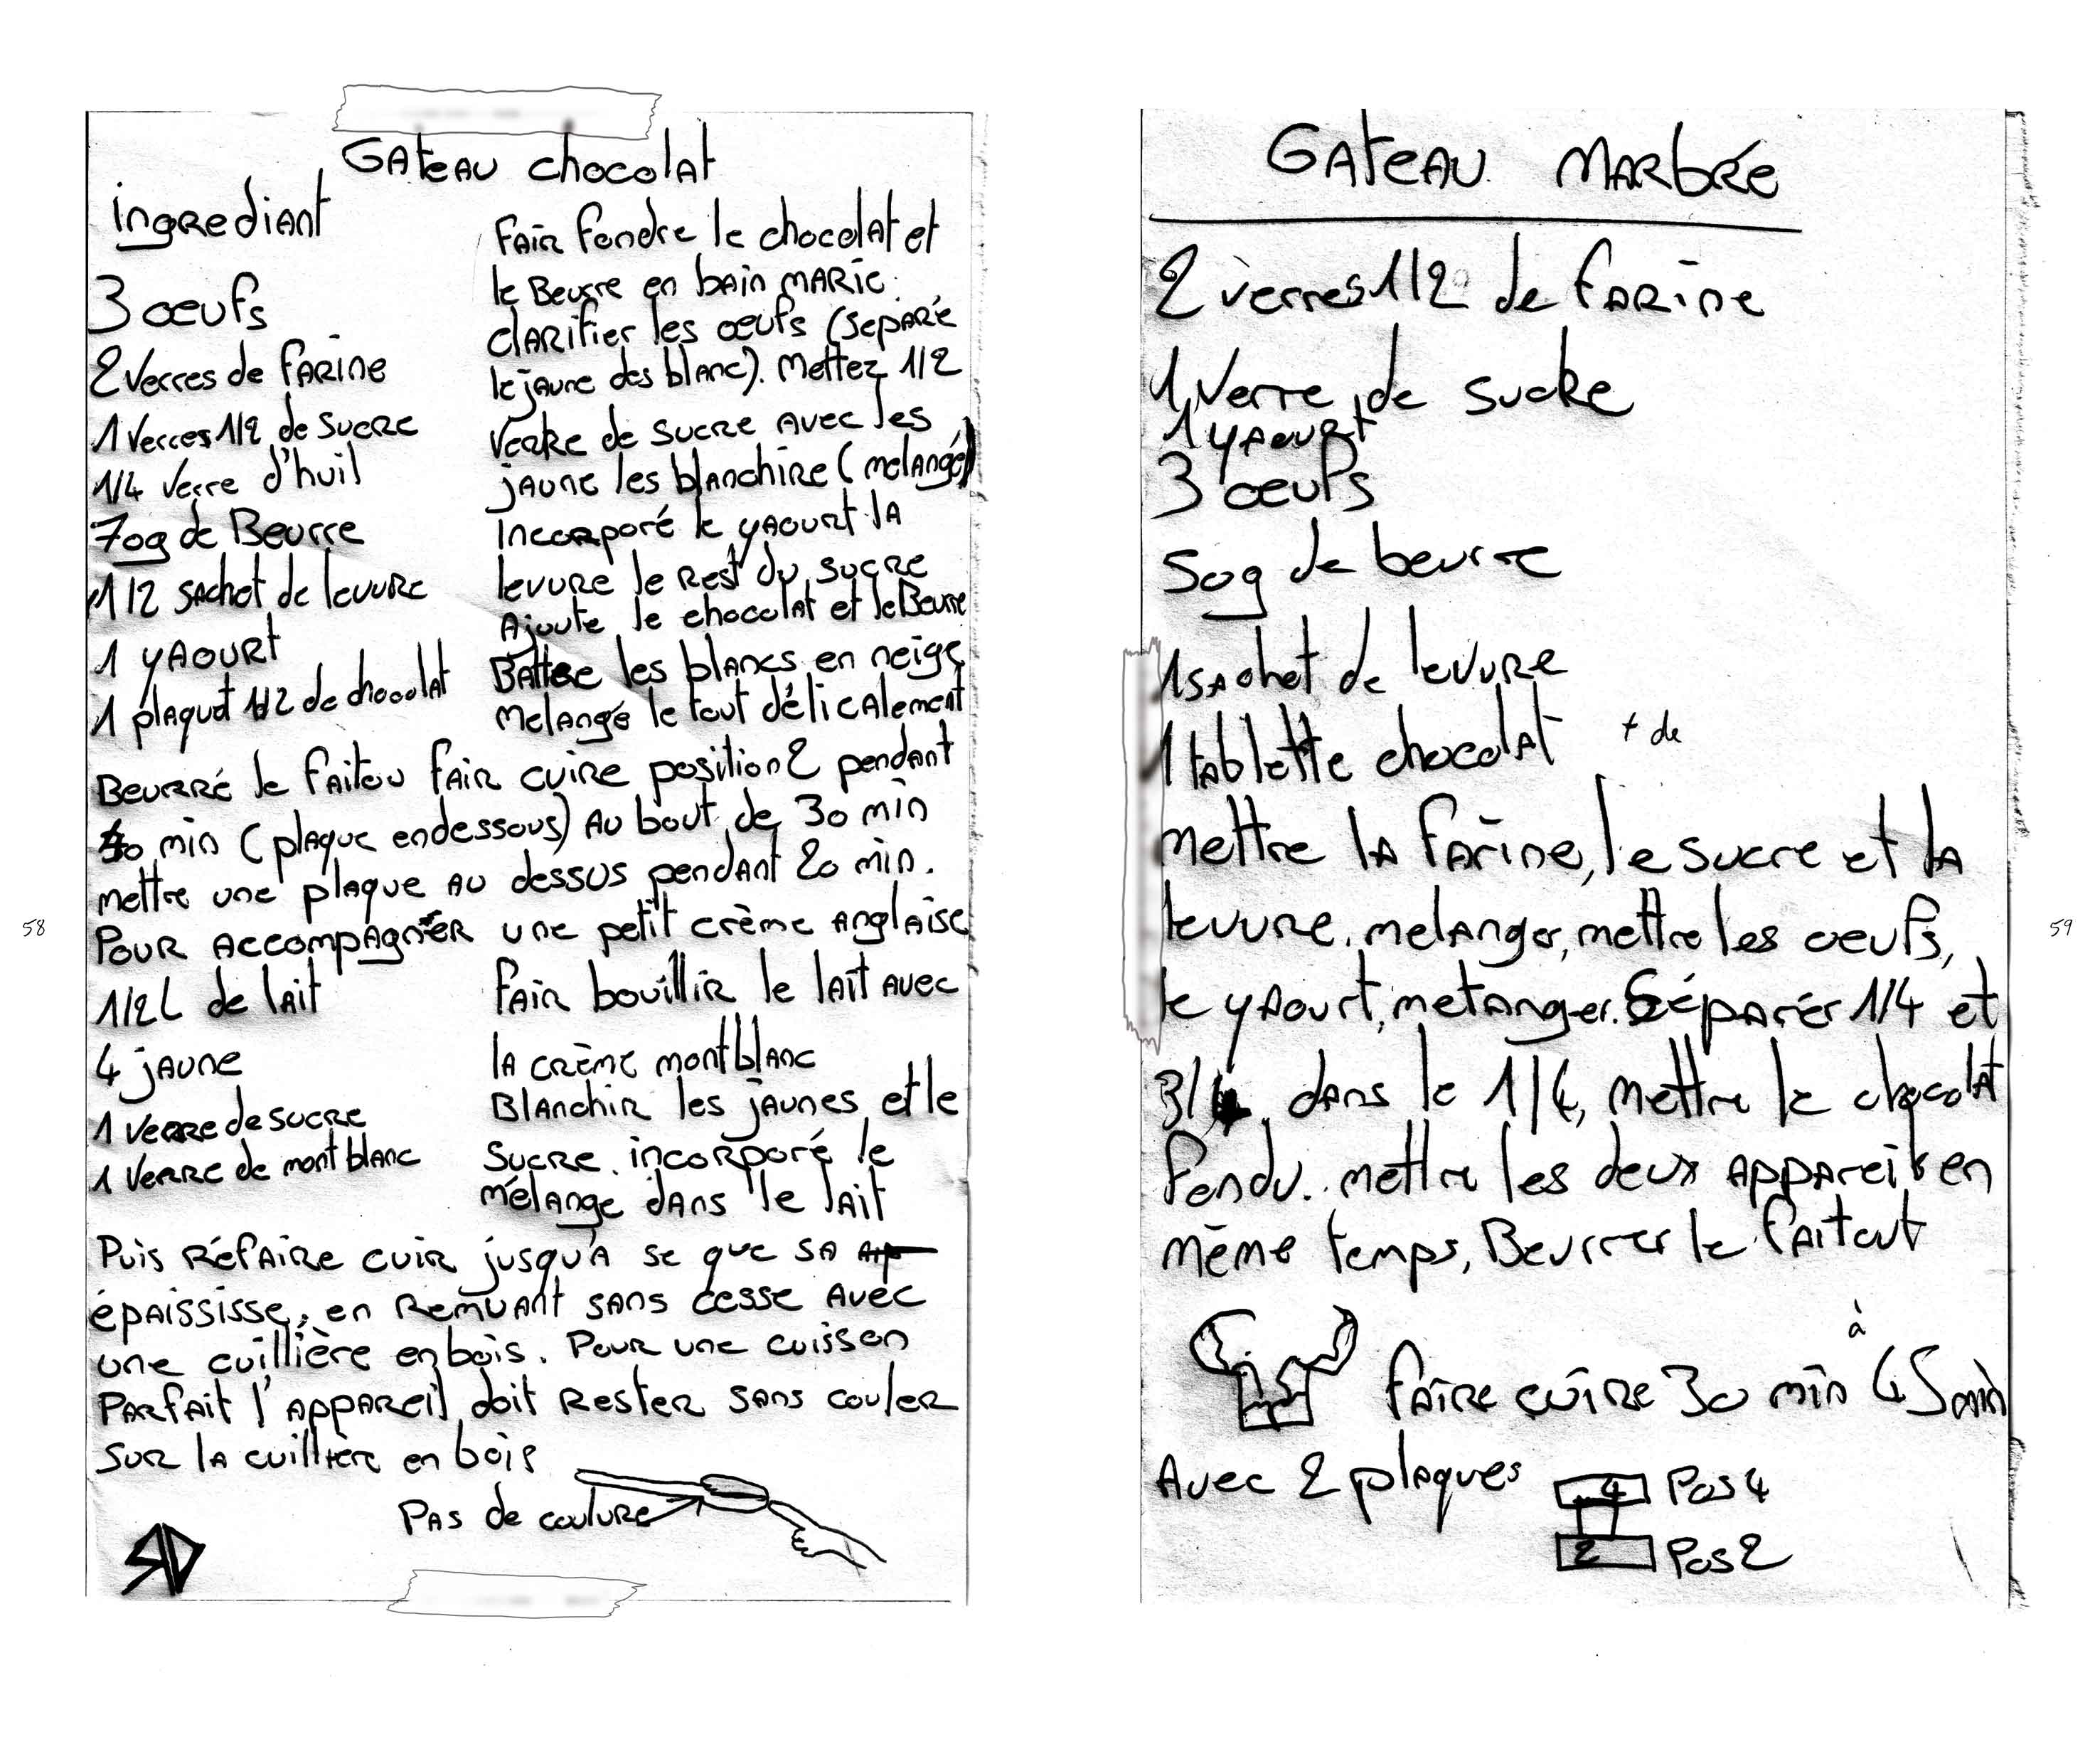 Gateau chocolat
ingrediant
3 œufs
2 verres de farine
1 verres 1/2 de sucre
1/4 verre d'huil
70g de Beurre
1/2 sachet de levure
1 yaourt
1 plaquet 1/2 de chocolat
Fair fondre le chocolat et
le Beurre en bain marie.
clarifier les œufs (separé
le jaune des blanc). Mettez 1/2
verre de sucre avec les
jaune les blanchire (melangé)
Incorporé le yaourt la
levure le rest du sucre
Ajoute le chocolat et le Beurre
Battre les blancs en neige
Melangé le tout délicalement
Beurré le faitou fair cuire position 2 pendant
40 min (plaque endessous) Au bout de 30 min
mettre une plaque au dessus pendant 20 min.
Pour accompagnér une petit crème anglaise
1/2 L de lait
4 jaune
1 verre de sucre
1 verre de mont blanc
Fair bouillir le lait avec
la crème montblanc
Blanchir les jaunes et le
sucre. incorporé le
mélange dans le lait
Puis réfaire cuir jusqu'a se que sa
épaississe, en remuant sans cesse avec
une cuillière en bois. Pour une cuisson
parfait l'appareil doit rester sans couler
sur la cuillière en bois
Pas de coulure
58
Gateau marbrée
2 verres 1/2 de farine
1 verre de sucre
1 yaourt
3 œufs
50g de beurre
1 sachet de levure
1 tablette chocolat + de
mettre la farine, le sucre et la
levure. melanger, mettre les oeufs,
le yaourt, metanger. Séparér 1/4 et
3/4. dans le 1/4, mettre le chocolat
fondu. mettre les deux appareils en
même temps, Beurrer le faitout
à
faire cuire 30 min 45 min
Avec 2 plaques
4 Pos 4
2 Pos 2
59